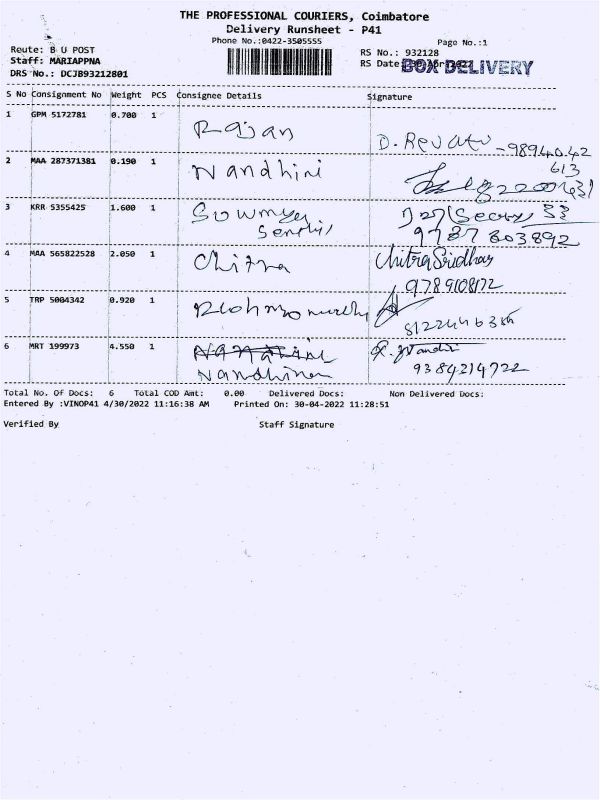 THE PROFESSIONAL COURIERS, Coimbatore
Delivery Runsheet - P41
Phone No.:0422-3505555
Page No.:1
Route: B U POST
RS No.: 932128
Staff: MARIAPPNA
RS Date
BOX DELIVERY
DRS No.: DCJB93212801
S No Consignment No Weight PCS Consignee Details Signature
1 GPM 5172781 0.700 1 Rajan D. Revati -9894042
613
2 MAA 287371381 0.190 1 Nandhini
3 KRR 5355425 1.600 1 Sowmya
Senthil 9787803892
4 MAA 565822528 2.050 1 Chitra Chitra Sridhar
9789108172
5 TRP 5004342 0.920 1
6 MRT 199973 4.550 1
9384214722
Total No. Of Docs: 6 Total COD Amt: 0.00 Delivered Docs: Non Delivered Docs:
Entered By :VINOP41 4/30/2022 11:16:38 AM Printed On: 30-04-2022 11:28:51
Verified By Staff Signature